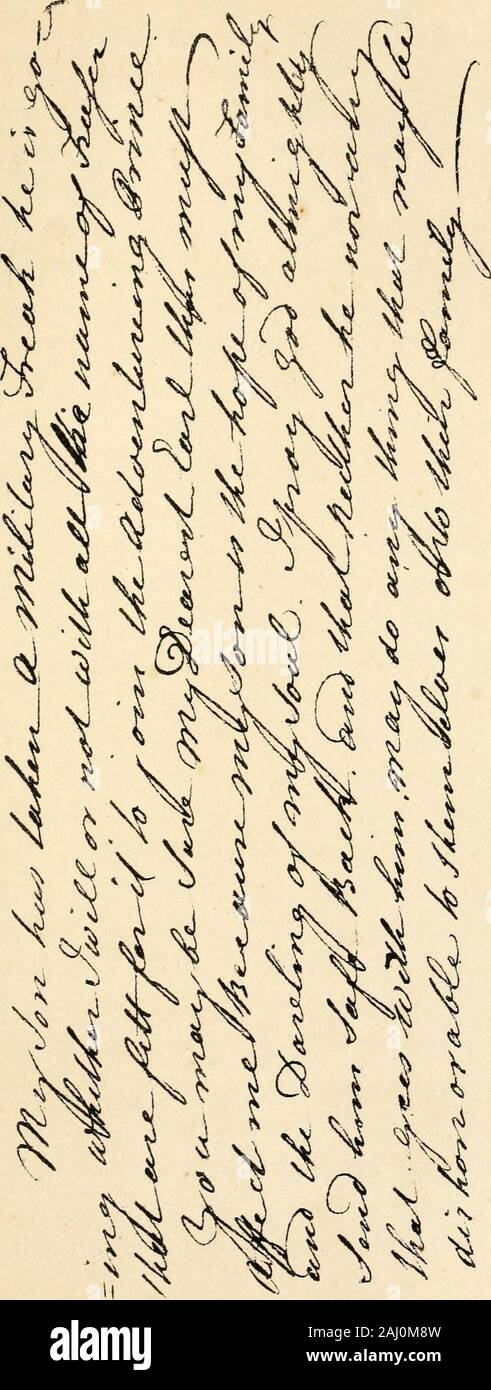 My Son has taken a Military Freak he is go=
=ing whether I will or not with all the name of Fraser
that are fitt for it to join the Adventuring Prince.
You may be Sure My Dearest Earl this must
affect me Because my Son is the hope of my Family
and the Darling of my Soul. I pray God almighty
Send him Safe Back, and that neither he nor any
that goes with him, may do any thing that may be
dishonorable to themselves or to their Family
alamy
Image ID: 2AJ0M8W
www.alamy.com